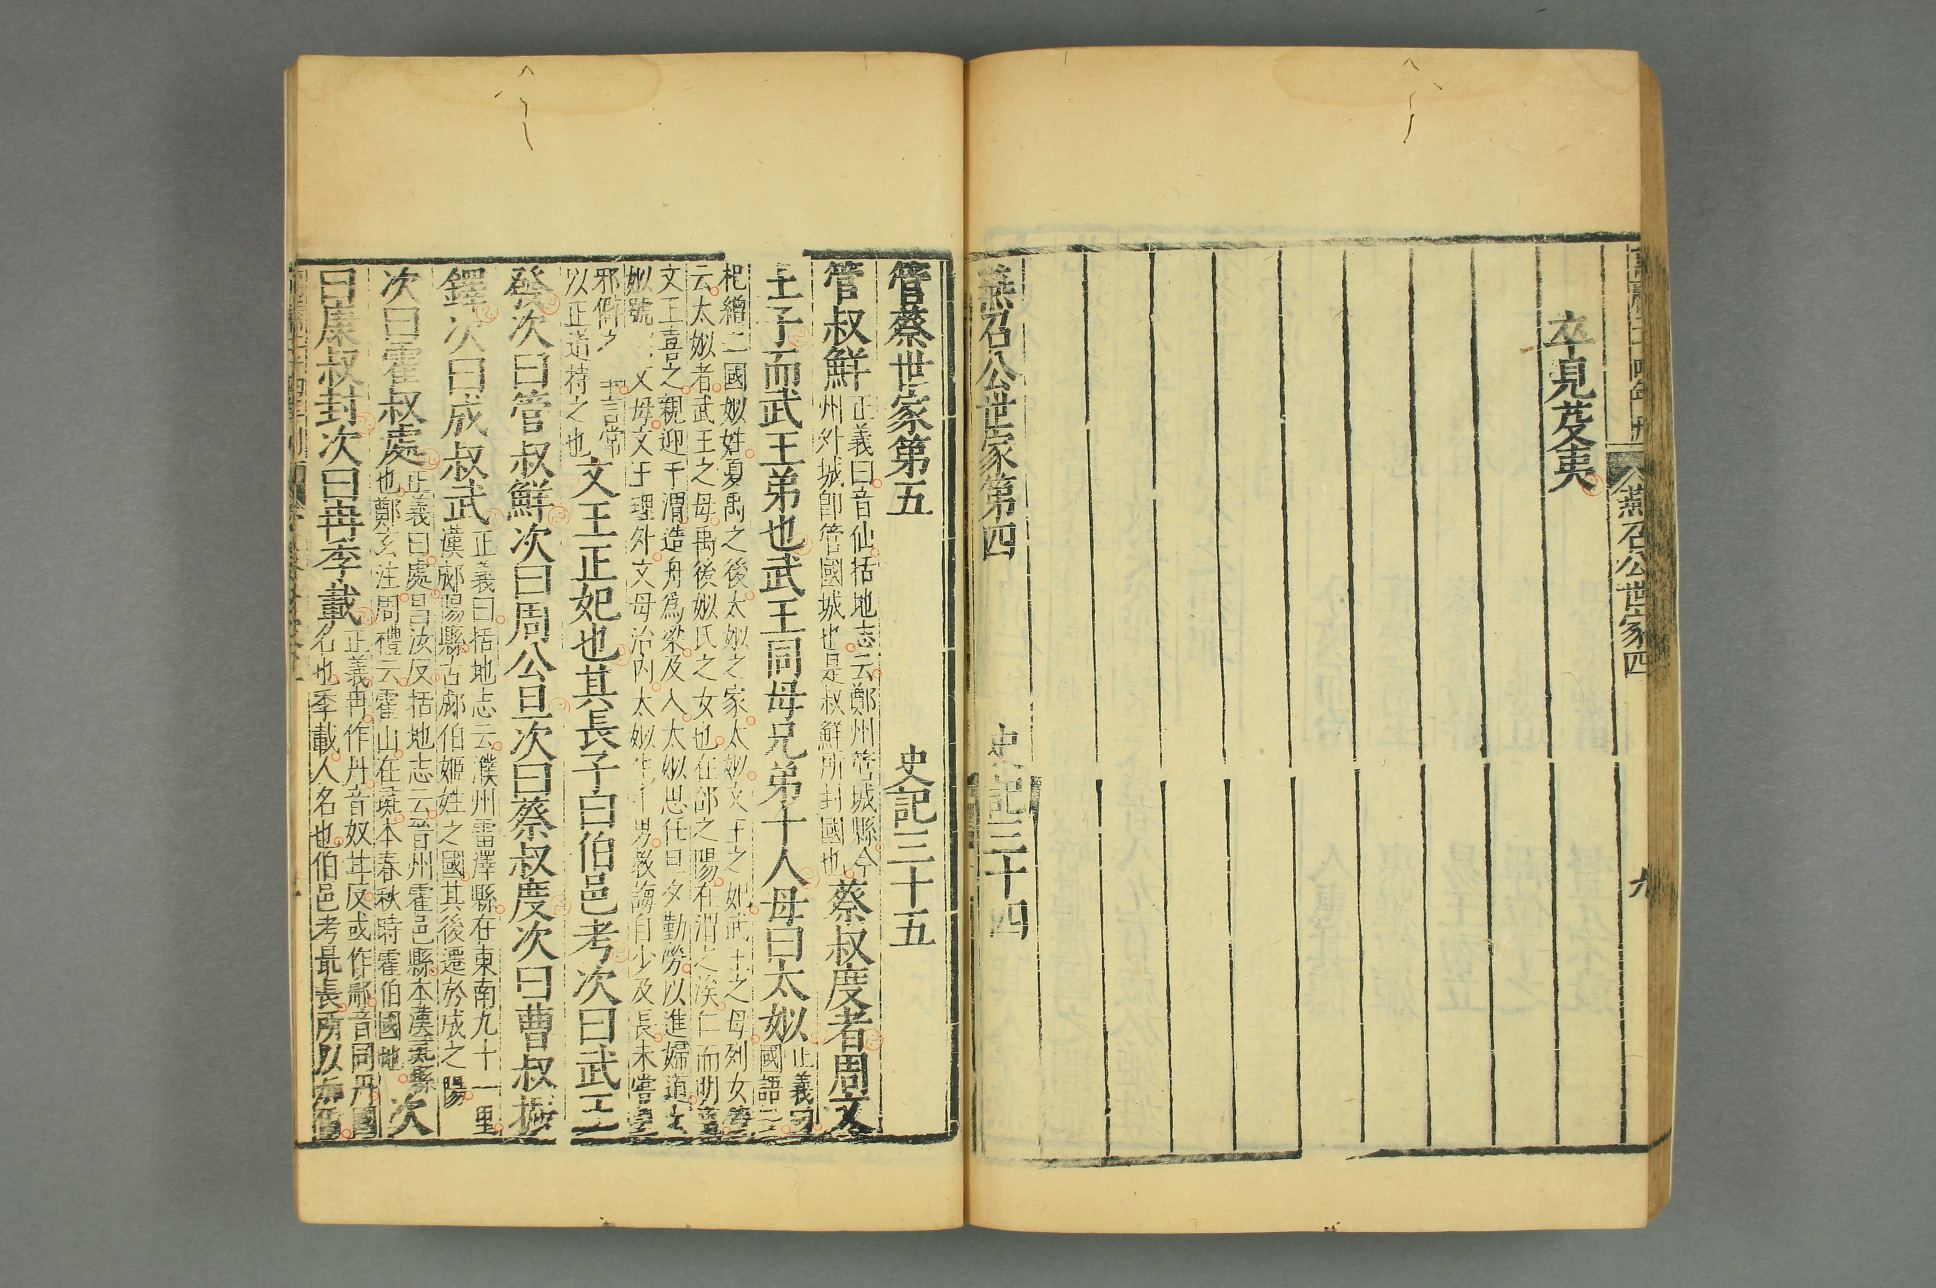 燕召公世家四
六
卒見芟夷
燕召公世家第四
史記三十四
管蔡世家第五
史記三十五
管叔鮮
正義曰音仙括地志云鄭州管城縣今
州外城卽管國城也是叔鮮所封國也
蔡叔度者周文
王子而武王弟也武王同母兄弟十人母曰太姒
正義曰
國語云
杞繒二國姒姓夏禹之後太姒之家太姒文王之妃武王之母列女
云太姒者武王之母禹後姒氏之女也在郃之陽在渭之涘仁而明
文王喜之親迎于渭造舟爲梁及入太姒思任旦夕勤勞以進婦道
姒號 文母文王理外文母治內太姒生十男教誨自少及長未嘗
邪僻之 言常
以正道持之也
文王正妃也其長子曰伯邑考次曰武王
發次曰管叔鮮次曰周公旦次曰蔡叔度次曰曹叔振
鐸次曰成叔武
正義曰括地志云濮州雷澤縣在東南九十一里
漢郕陽縣古郕伯姬姓之國其後遷於成之陽
次曰霍叔處
正義曰處昌汝反括地志云晉州霍邑縣本漢彘縣
也鄭玄注周禮云霍山在彘本春秋時霍伯國地
次
曰康叔封次曰冉季載
正義冉作丹音奴甘反或作𨚗音同丹國
名也季載人名也伯邑考最長所以